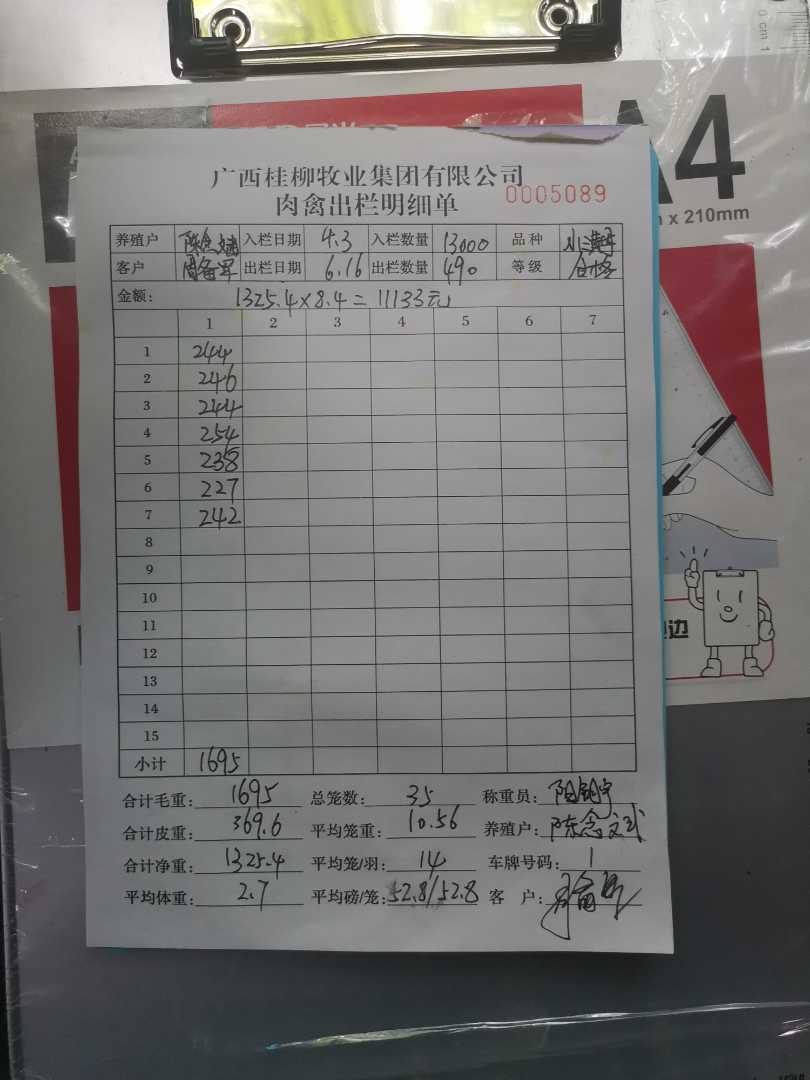 A4
m x 210mm
0 cm 1
广西桂柳牧业集团有限公司
肉禽出栏明细单
0005089
养殖户 入栏日期 4.3 入栏数量 13000 品种
客户 出栏日期 6.16 出栏数量 490 等级 合格
金额: 1325.4×8.4=11133元
1 2 3 4 5 6 7
1 244
2 246
3 244
4 254
5 238
6 227
7 242
8
9
10
11
12
13
14
15
小计 1695
合计毛重: 1695 总笼数: 35 称重员:
合计皮重: 369.6 平均笼重: 10.56 养殖户: 陈念文武
合计净重: 1325.4 平均笼/羽: 14 车牌号码: 1
平均体重: 2.7 平均磅/笼: 52.8/52.8 客 户:
边